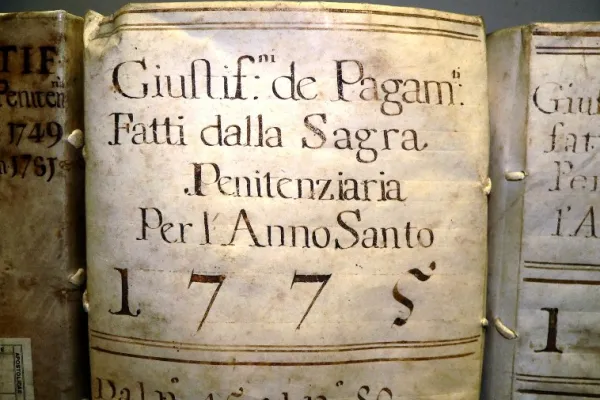 TIF
Peniten
1749
1761
Giustif:ni de Pagam:ti
Fatti dalla Sagra
Penitenziaria
Per l'Anno Santo
1775
Gius
fatt
Pen
l'A
1